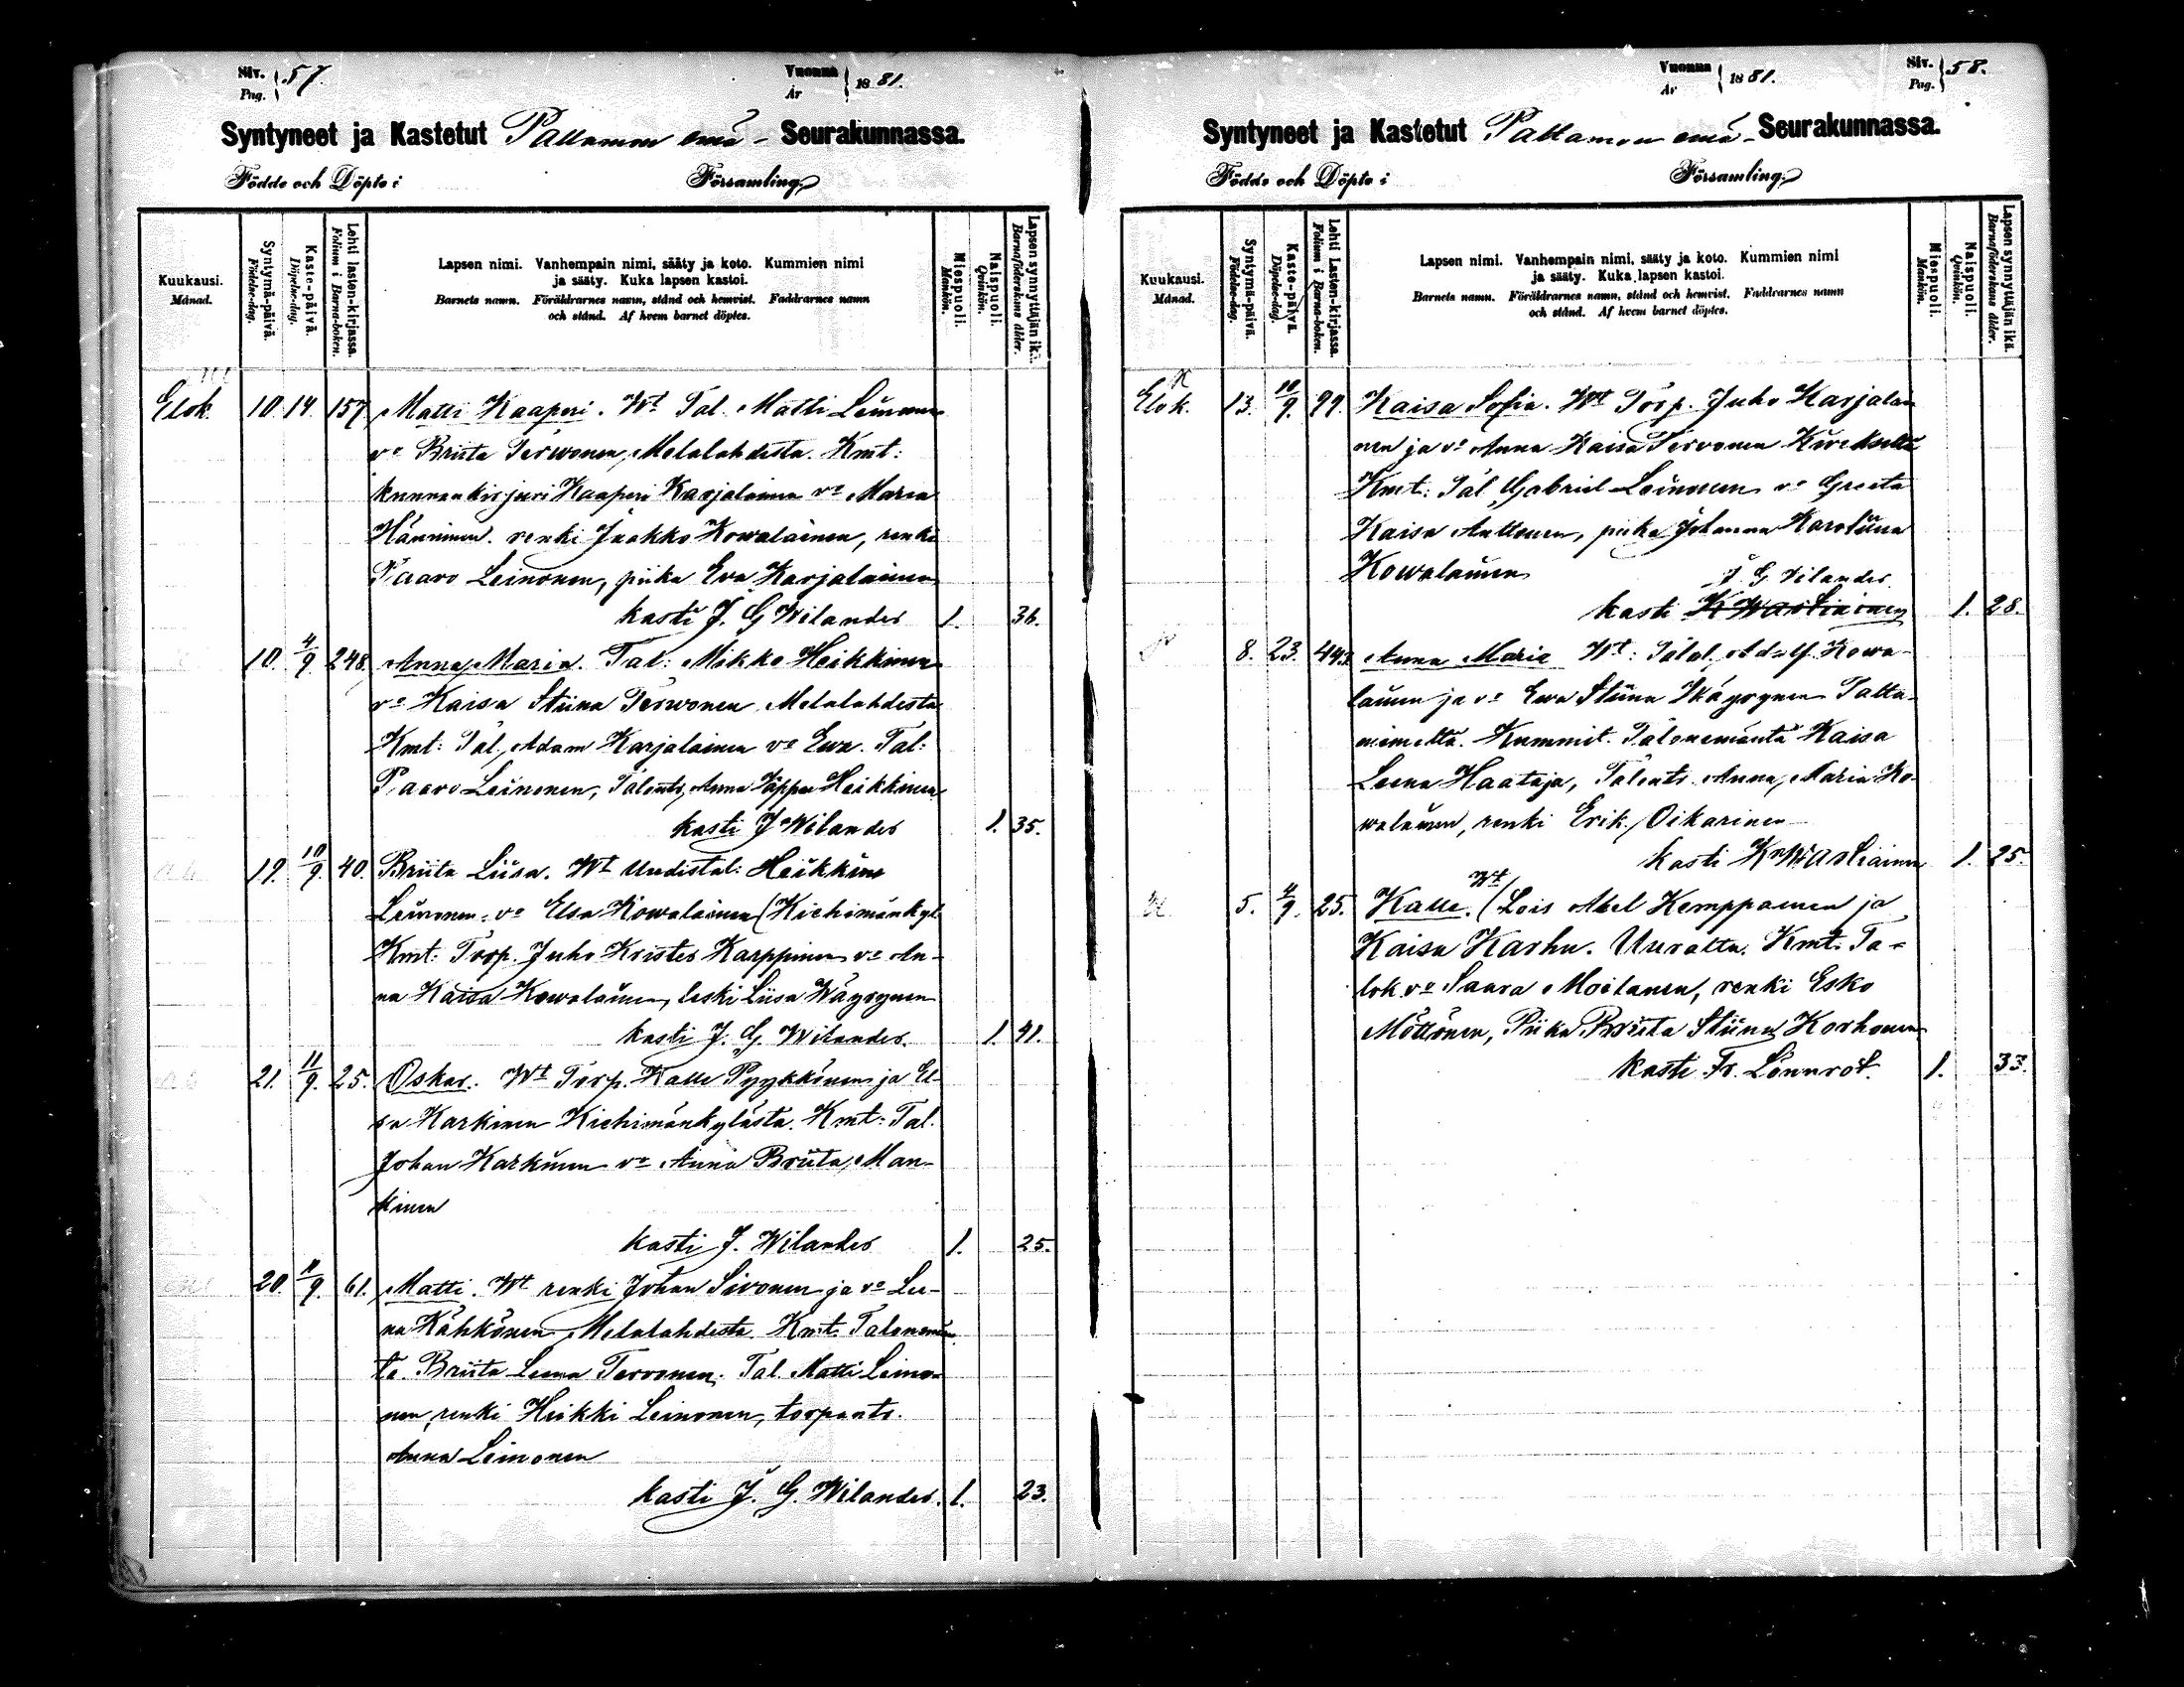 Siv. Pag. } 57.
Vuonna År } 1881.
Syntyneet ja Kastetut Paltamon emä- Seurakunnassa.
Födde och Döpte i Församling.
Kuukausi. Månad.
Syntymä-päivä. Födelse-dag.
Kaste-päivä. Döpelse-dag.
Lehti lasten-kirjassa. Folium i Barna-boken.
Lapsen nimi. Vanhempain nimi, sääty ja koto. Kummien nimi
ja sääty. Kuka lapsen kastoi.
Barnets namn. Föräldrarnes namn, stånd och hemvist. Faddrarnes namn
och stånd. Af hvem barnet döptes.
Miespuoli. Mankön.
Naispuoli. Qvinkön.
Lapsen synnyttäjän ikä. Barnaföderskans ålder.
Elok. 10. 14. 157. Matti Kaaperi. Wt Tal. Matti Leinonen
vo Briita Terwonen, Melalahdesta. Kmt:
kunnankirjuri Kaaperi Karjalainen vo Maria
Hänninen. renki Jaakko Kowalainen, renki
Paavo Leinonen, piika Eva Karjalainen
kasti J. G Wilander 1. 36.
10. 4/9. 248. Anna Maria. Tal: Mikko Heikkinen
vo Kaisa Stiina Terwonen Melalahdesta
Kmt: Tal. Adam Karjalainen vo Ewa. Tal:
Paavo Leinonen, Talonts. Anna Heikkinen
kasti J Wilander 1. 35.
19. 10/9. 40. Briita Liisa. Wt Uudistal: Heikki
Leinonen vo Elsa Kowalainen (Kiehimänkyl.
Kmt: Torp. Juho Krister Karppinen vo An-
na Kaisa Kowalainen, leski Liisa Wäyrynen
kasti J. G. Wilander. 1. 41.
21. 11/9. 25. Oskar. Wt Torp. Kalle Pyykkönen ja El-
sa Karkinen Kiehimänkylästä. Kmt: Tal.
Johan Karkinen vo Anna Briita Man-
kinen
kasti J. Wilander 1. 25.
20. 11/9. 61. Matti. Wt renki Johan Sivonen ja vo Lee-
na Kähkönen Melalahdesta Kmt. Talonemän-
tä Briita Leena Tervonen. Tal. Matti Leino-
nen, renki Heikki Leinonen, torpants.
Anna Leinonen
kasti J. G. Wilander. 1. 23.
Vuonna År } 1881.
Siv. Pag. } 58.
Syntyneet ja Kastetut Paltamon emä- Seurakunnassa.
Födde och Döpte i Församling.
Kuukausi. Månad.
Syntymä-päivä. Födelse-dag.
Kaste-päivä. Döpelse-dag.
Lehti Lasten-kirjassa. Folium i Barna-boken.
Lapsen nimi. Vanhempain nimi, sääty ja koto. Kummien nimi
ja sääty. Kuka lapsen kastoi.
Barnets namn. Föräldrarnes namn, stånd och hemvist. Faddrarnes namn
och stånd. Af hvem barnet döptes.
Miespuoli. Mankön.
Naispuoli. Qvinkön.
Lapsen synnyttäjän ikä. Barnaföderskans ålder.
Elok. 13. 10/9. 99. Kaisa Sofia. Wt Torp. Juho Karjalai
nen ja vo Anna Kaisa Tervonen
Kmt: Tal Gabriel Leinonen vo Greeta
Kaisa Anttonen, piika Johanna Karoliina
Kowalainen
J. G Wilander
kasti K Wartiainen 1. 28.
8. 23. 443. Anna Maria Wt: Talol. Adolf Kowa-
lainen ja vo Ewa Stiina Wäyrynen Palta-
niemeltä. Kummit. Talonemäntä Kaisa
Leena Haataja, Talonts. Anna Maria Ko-
walainen, renki Erik Oikarinen
kasti K Wartiainen 1. 25.
5. 4/9. 25. Kalle. Wt (Lois Abel Kemppainen ja
Kaisa Karhu. Uuralta. Kmt. Ta-
lok. vo Saara Moilanen, renki Esko
Möttönen, Piika Briita Stiina Korhonen
kasti Fr. Lönnrot. 1. 33.